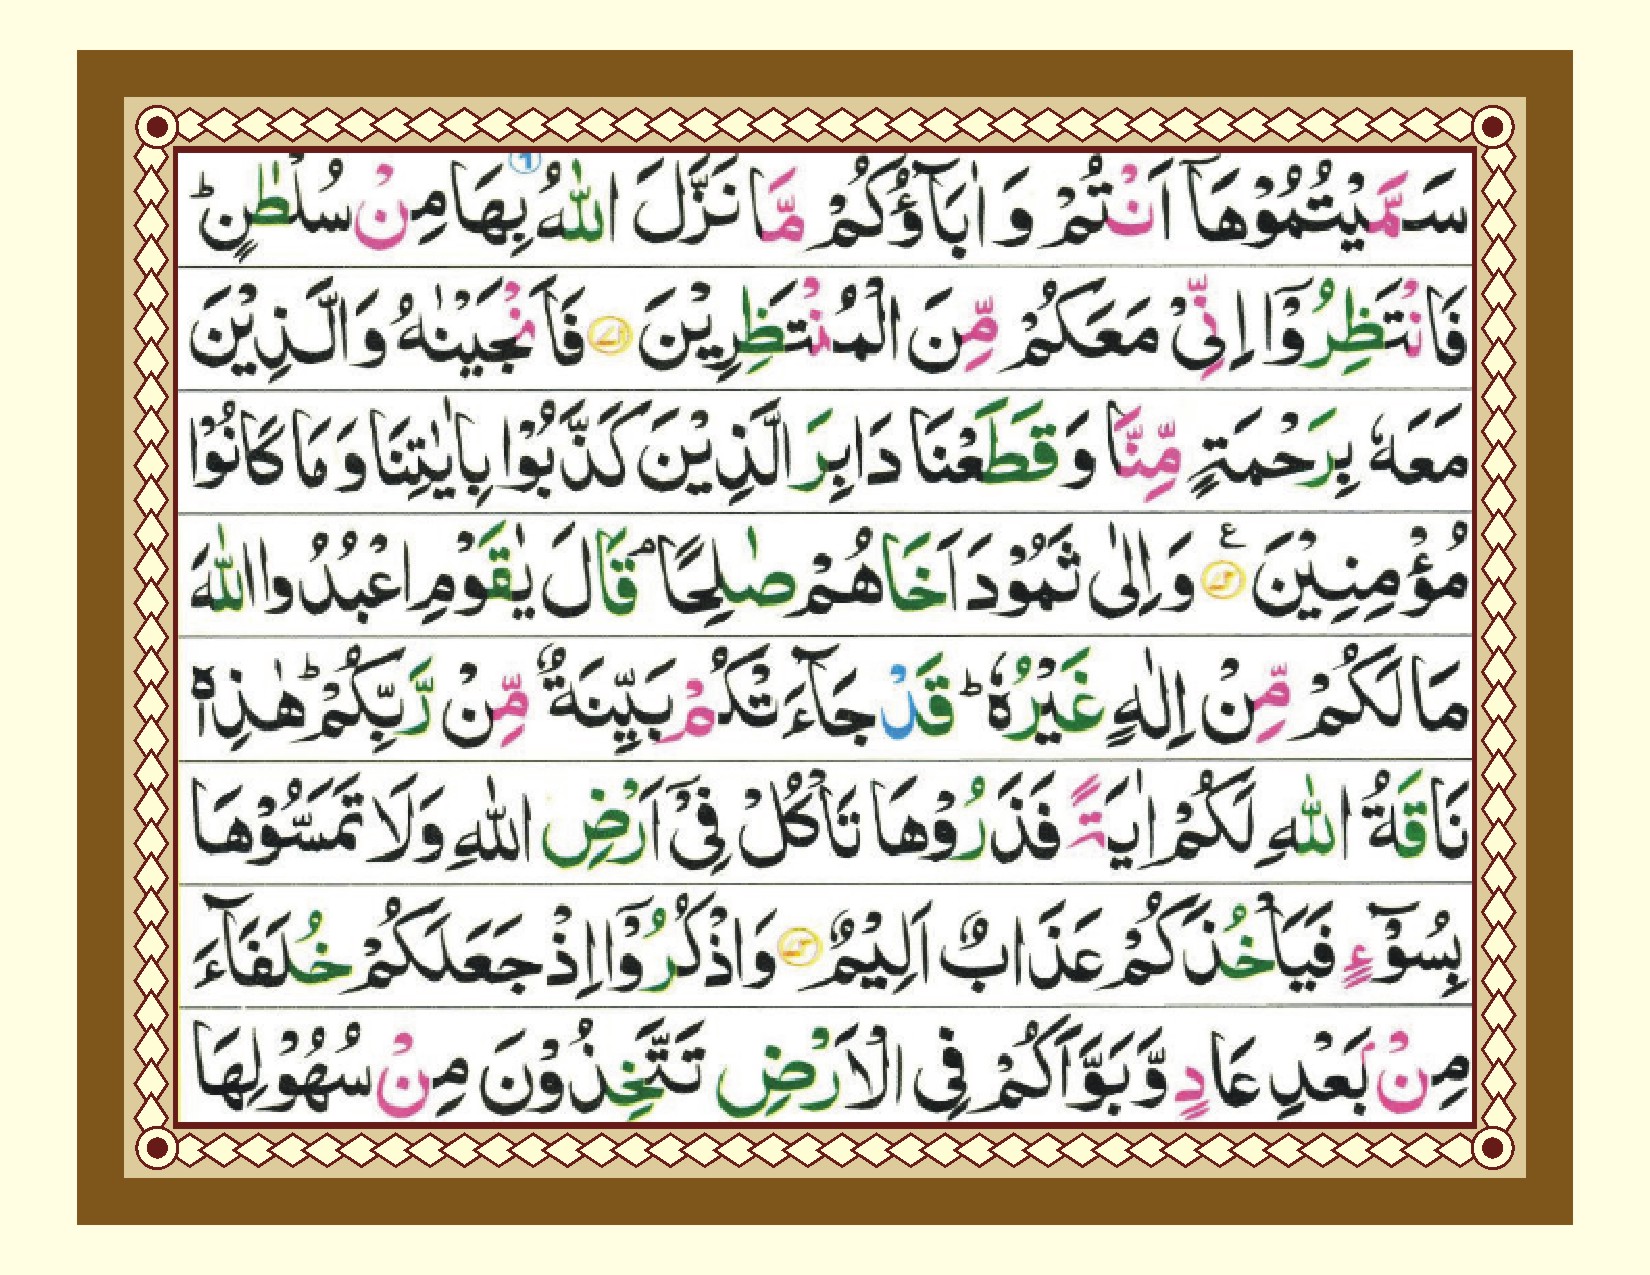 سَمَّيْتُمُوْهَاۤ اَنْتُمْ وَ اٰبَآؤُكُمْ مَّا نَزَّلَ اللّٰهُ بِهَا مِنْ سُلْطٰنٍ ؕ
فَانْتَظِرُوْۤا اِنِّیْ مَعَكُمْ مِّنَ الْمُنْتَظِرِیْنَ ۝۷۱ فَاَنْجَیْنٰهُ وَالَّذِیْنَ
مَعَهٗ بِرَحْمَةٍ مِّنَّا وَ قَطَعْنَا دَابِرَ الَّذِیْنَ كَذَّبُوْا بِاٰیٰتِنَا وَ مَا كَانُوْا
مُؤْمِنِیْنَ ۝۷۲ ع وَ اِلٰی ثَمُوْدَ اَخَاهُمْ صٰلِحًا ۘ قَالَ یٰقَوْمِ اعْبُدُوا اللّٰهَ
مَا لَكُمْ مِّنْ اِلٰهٍ غَیْرُهٗ ؕ قَدْ جَآءَتْكُمْ بَیِّنَةٌ مِّنْ رَّبِّكُمْ ؕ هٰذِهٖ
نَاقَةُ اللّٰهِ لَكُمْ اٰیَةً فَذَرُوْهَا تَاْكُلْ فِیْۤ اَرْضِ اللّٰهِ وَلَا تَمَسُّوْهَا
بِسُوْٓءٍ فَیَاْخُذَكُمْ عَذَابٌ اَلِیْمٌ ۝۷۳ وَاذْكُرُوْۤا اِذْ جَعَلَكُمْ خُلَفَآءَ
مِنْۢ بَعْدِ عَادٍ وَّ بَوَّاَكُمْ فِی الْاَرْضِ تَتَّخِذُوْنَ مِنْ سُهُوْلِهَا